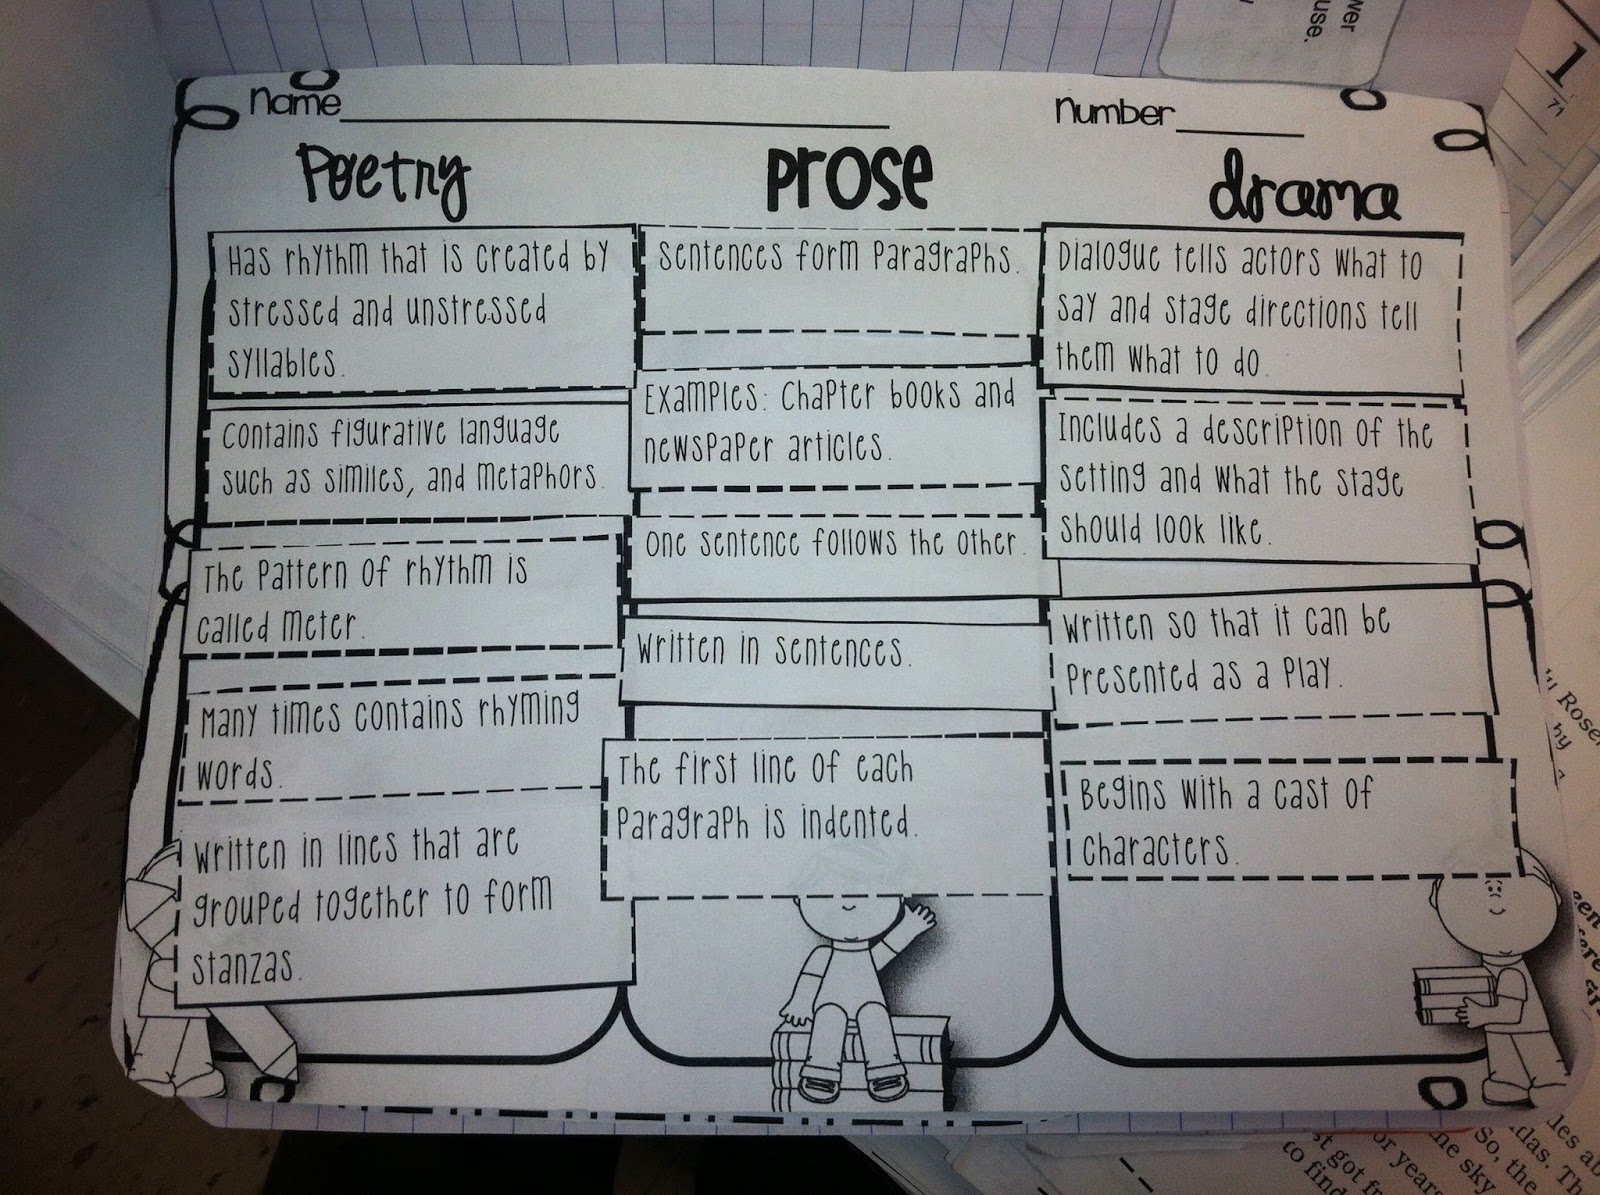 wer
use.
1
71
Name
Number
Poetry
Prose
drama
Has rhythm that is created by
stressed and unstressed
syllables.
Contains figurative language
such as similes, and metaphors.
The pattern of rhythm is
called meter.
Many times contains rhyming
words.
Written in lines that are
grouped together to form
stanzas.
Sentences form paragraphs.
Examples: Chapter books and
newspaper articles.
One sentence follows the other.
Written in sentences.
The first line of each
paragraph is indented.
Dialogue tells actors what to
say and stage directions tell
them what to do.
Includes a description of the
setting and what the stage
should look like.
Written so that it can be
presented as a play.
Begins with a cast of
characters.
Rose
So, the
to find